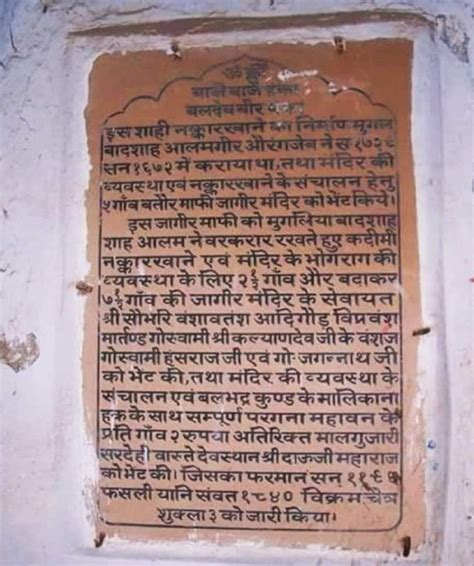 ॐ
बाजे बाजे डंका
बलदेव वीर
इस शाही नक्कारखाने का निर्माण मुगल
बादशाह आलमगीर औरंगजेब ने स १७२९
सन १६७२ में कराया था, तथा मंदिर की
व्यवस्था एवं नक्कारखाने के संचालन हेतु
५ गाँव बतौर माफी जागीर मंदिर को भेंट किये।
इस जागीर माफी को मुगलिया बादशाह
शाह आलम ने वरकरार रखते हुए कदीमी
नक्कारखाने एवं मंदिर के भोगराग की
व्यवस्था के लिए २½ गाँव और बढाकर
७½ गाँव की जागीर मंदिर के सेवायत
श्री सौभरि वंशावतंश आदिगौड़ विप्रवंश
मार्तण्ड गोस्वामी श्री कल्याणदेव जी के वंशज
गोस्वामी हंसराज जी एवं गो॰ जगन्नाथ जी
को भेंट की, तथा मंदिर की व्यवस्था के
संचालन एवं बलभद्र कुण्ड के मालिकाना
हक़ के साथ सम्पूर्ण परगना महावन के
प्रति गाँव २ रुपया अतिरिक्त मालगुजारी
सरदेही वास्ते देवस्थान श्री दाऊजी महाराज
को भेंट की। जिसका फरमान सन
फसली यानि संवत १८४० विक्रम चैत्र
शुक्ला ३ को जारी किया।